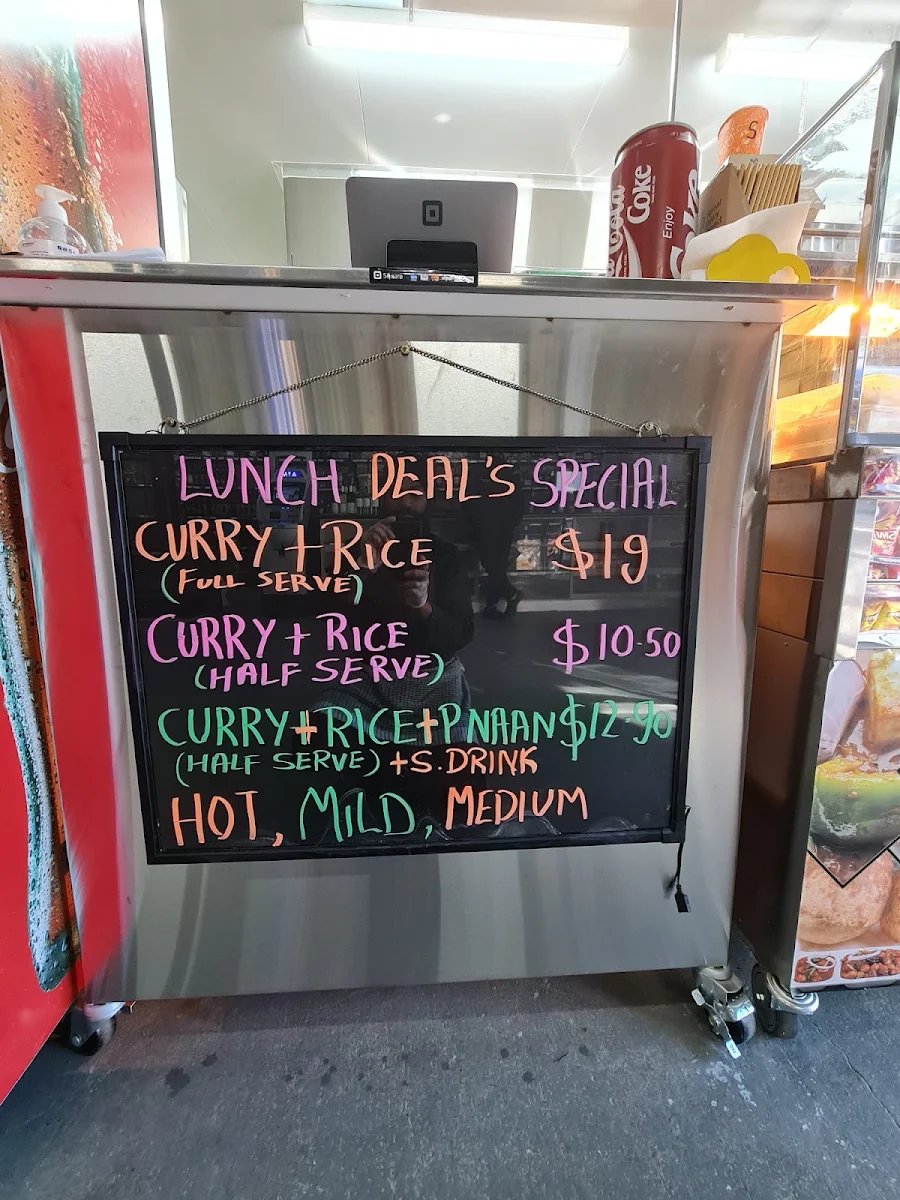 S
Coke
Enjoy
Square
LUNCH DEAL'S SPECIAL
CURRY + RICE $19
(FULL SERVE)
CURRY + RICE $10.50
(HALF SERVE)
CURRY+RICE+P NAAN $12.90
(HALF SERVE) +S.DRINK
HOT, MILD, MEDIUM